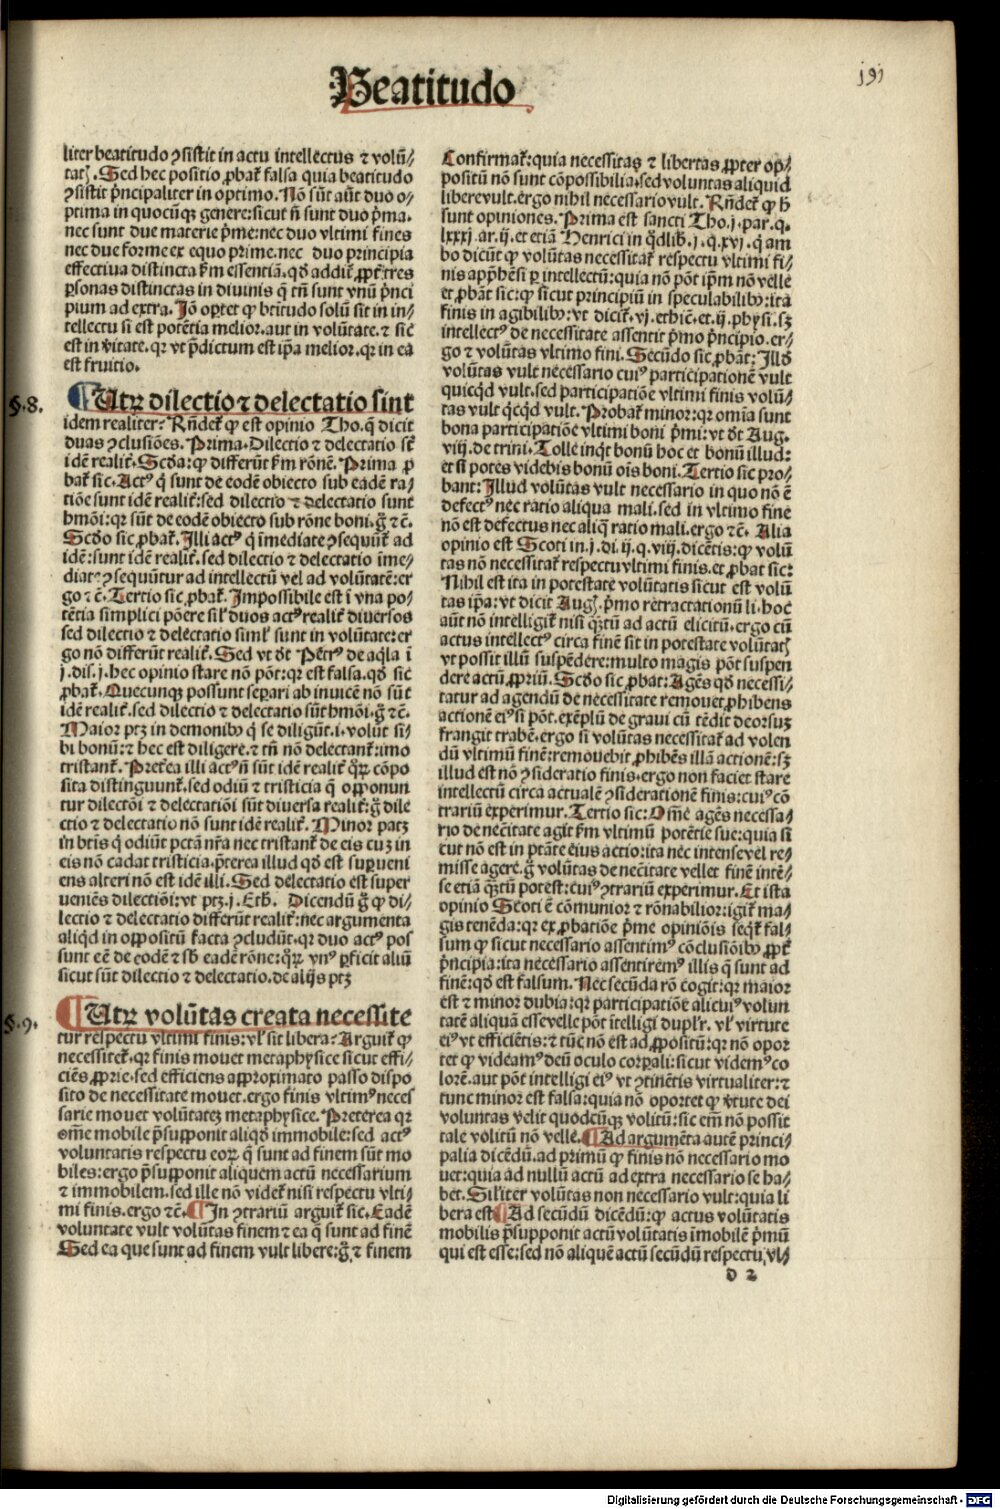 Beatitudo
191
liter beatitudo ꝯsistit in actu intellectus ⁊ volū⸗
tatꝭ. Sed hec positio ꝓbat̄ falsa quia beatitudo
ꝯsistit p̄ncipaliter in optimo. Nō sūt aūt duo o⸗
ptima in quocūqꝫ genere: sicut n̄ sunt duo p̄ma.
nec sunt due materie p̄me: nec duo vltimi fines
nec due forme ex equo prime. nec duo principia
effectiua distincta ẜm essentiā. qđ addit̄ ꝓpt̄ tres
ꝑsonas distinctas in diuinis q̄ tn̄ sunt vnū p̄nci
pium ad extra. Jō oꝑtet ꝙ btitudo solū sit in in⸗
tellectu si est potētia melior. aut in volūtate. ⁊ sic
est in v̄itate. qꝛ vt p̄dictum est ip̄a melior. qꝛ in ea
est fruitio.
§.8.
¶ Utꝝ dilectio ⁊ delectatio sint
idem realiter? Rn̄det̄ ꝙ est opinio Tho. q̄ dicit
duas ꝯclusiōes. Prima. Dilectio ⁊ delectatio st̄
idē realit̄. Scd̄a: ꝙ differūt ẜm rōnē. Prima ꝓ
bat̄ sic. Actꝰ q̄ sunt de eodē obiecto sub eadē ra⸗
tiōe sunt idē realit̄: sed dilectio ⁊ delectatio sunt
hmōi: qꝛ sūt de eodē obiecto sub rōne boni. g̊ ⁊c̄.
Scd̄o sic ꝓbat̄. Illi actꝰ q̄ īmediate ꝯsequūt̄ ad
idē: sunt idē realit̄. sed dilectio ⁊ delectatio īme⸗
diate ꝯsequūtur ad intellectū vel ad volūtatē: er
go ⁊c̄. Tertio sic ꝓbat̄. Impossibile est ī vna po⸗
tētia simplici pōere sil̄ duos actꝰ realit̄ diuersos
sed dilectio ⁊ delectatio siml̓ sunt in volūtate: er
go nō differūt realit̄. Sed vt dt̄ Petrꝰ de aq̄la ī
j. dis. j. hec opinio stare nō pōt: qꝛ est falsa. qđ sic
ꝓbat̄. Quecunqꝫ possunt separi ab inuicē nō sūt
idē realit̄. sed dilectio ⁊ delectatio sūt hmōi. g̊ ⁊c̄.
Maior ptꝫ in demonibꝰ q̄ se diligūt. i. volūt si⸗
bi bonū: ⁊ hec est diligere. ⁊ tn̄ nō delectant̄: imo
tristant̄. Preterea illi actꝰ n̄ sūt idē realit̄ qꝝ cōpo
sita distinguunt̄. sed odiū ⁊ tristicia q̄ opponun
tur dilectōi ⁊ delectatiōi sūt diuersa realit̄: g̊ dile
ctio ⁊ delectatio nō sunt idē realit̄. Minor patꝫ
in btīs q̄ odiūt pctā nr̄a nec tristant̄ de eis cuꝫ in
eis nō cadat tristicia. p̄terea illud qđ est suꝑueni
ens alteri nō est idē illi. Sed delectatio est super
ueniēs dilectiōi: vt ptꝫ. j. Eth. Dicendū g̊ ꝙ di⸗
lectio ⁊ delectatio differūt realit̄: nec argumenta
aliq̄d in oppositū facta ꝯcludūt. qꝛ duo actꝰ pos
sunt eē de eodē ⁊ sb̄ eadē rōne: qꝝ vnꝰ ꝑficit aliū
sicut sūt dilectio ⁊ delectatio. de alijs ptꝫ
§.9.
¶ Utꝝ volūtas creata necessite
tur respectu vltimi finis: vl̓ sit libera? Arguit̄ ꝙ
necessitet̄. qꝛ finis mouet metaphysice sicut effi⸗
ciēs ꝓprie. sed efficiens approximato passo dispo
sito de necessitate mouet. ergo finis vltimꝰ neces
sarie mouet volūtateꝫ metaphysice. Preterea qꝛ
om̄e mobile p̄supponit aliqđ immobile: sed actꝰ
voluntatis respectu eoꝝ q̄ sunt ad finem sūt mo
biles: ergo p̄supponit aliquem actū necessarium
⁊ immobilem. sed ille nō videt̄ nisi respectu vlti⸗
mi finis. ergo ⁊c̄. ¶ In ꝯtrariū arguit̄ sic. Eadē
voluntate vult volūtas finem ⁊ ea q̄ sunt ad finē
Sed ea que sunt ad finem vult libere: g̊ ⁊ finem
Confirmat̄: quia necessitas ⁊ libertas ꝓpter op⸗
positū nō sunt cōpossibilia. sed voluntas aliquid
libere vult. ergo nihil necessario vult. Rn̄det̄ ꝙ h̄
sunt opiniones. Prima est sancti Tho. j. par. q.
lxxxj. ar. ij. et etiā Henrici in q̄dlib. j. q. xvj. q̄ am
bo dicūt ꝙ voluntas necessitat̄ respectu vltimi fi⸗
nis appʰensi ꝑ intellectū: quia nō pōt ip̄m nō velle
et ꝓbāt sic: ꝙ sicut principiū in speculabilibꝰ: ita
finis in agibilibꝰ: vt dicit̄. vj. ethicē. et. ij. physi. sꝫ
intellectꝰ de necessitate assentit p̄mo p̄ncipio. er⸗
go ⁊ volūtas vltimo fini. Secūdo sic ꝓbāt: Illđ
volūtas vult necessario cuiꝰ participationē vult
quicq̄d vult. sed participatiōe vltimi finis volū⸗
tas vult q̄cq̄d vult. Probat̄ minor: qꝛ om̄ia sunt
bona participatiōe vltimi boni p̄mi: vt dt̄ Aug.
viij. de trini. Tolle inq̄t bonū hoc et bonū illud:
et si potes videbis bonū oīs boni. Tertio sic pro⸗
bant: Illud volūtas vult necessario in quo nō ē
defectꝰ nec ratio aliqua mali. sed in vltimo fine
nō est defectus nec aliq̄ ratio mali. ergo ⁊c̄. Alia
opinio est Scoti in. j. di. ij. q. viij. dicētis: ꝙ volū
tas nō necessitat̄ respectu vltimi finis. et ꝓbat sic:
Nihil est ita in potestate volūtatis sicut est volū
tas ip̄a: vt dicit Augꝭ. p̄mo retractationū li. hoc
aūt nō intelligit̄ nisi q̄ꝫtū ad actū elicitū. ergo cū
actus intellectꝰ circa finē sit in potestate volūtatꝭ
vt possit illū suspēdere: multo magis pōt suspen
dere actū ꝓpriū. Scd̄o sic ꝓbat: Agēs qđ necessi⸗
tatur ad agendū de necessitate remouet ꝓhibens
actionē eiꝰ si pōt. exēplū de graui cū tēdit deorsuꝫ
frangit trabē. ergo si volūtas necessitat̄ ad volen
dū vltimū finē: remouebit ꝓhibēs illā actionē: sꝫ
illud est nō ꝯsideratio finis. ergo non faciet stare
intellectū circa actualē ꝯsiderationē finis: cuiꝰ cō
trariū experimur. Tertio sic: Om̄e agēs necessa⸗
rio de nec̄itate agit ẜm vltimū potētie sue: quia si
cut nō est in ptāte eius actio: ita nec intense vel re⸗
misse agere. g̊ volūtas de nec̄itate vellet finē intē⸗
se etiā q̄ꝫtū potest: cuiꝰ ꝯtrariū experimur. Et ista
opinio Scoti ē cōmunior ⁊ rōnabilior: igit̄ ma⸗
gis tenēda: qꝛ ex ꝓbatiōe p̄me opiniōis seqt̄ fal⸗
sum ꝙ sicut necessario assentimꝰ cōclusiōibꝰ ꝓpt̄
p̄ncipia: ita necessario assentiremꝰ illis q̄ sunt ad
finē: qđ est falsum. Nec secūda rō cogit: qꝛ maior
est ⁊ minor dubia: qꝛ participatiōe alicuiꝰ volun
tatē aliquā esse velle pōt ītelligi dupl̓r. vl̓ virtute
eiꝰ vt efficiētis: ⁊ tūc nō est ad ꝓpositū: qꝛ nō opor
tet ꝙ videamꝰ deū oculo corꝑali: sicut videmꝰ co
lorē. aut pōt intelligi eiꝰ vt ꝯtinētis virtualiter: ⁊
tunc minor est falsa: quia nō oportet ꝙ v̄tute dei
voluntas velit quodcūqꝫ volitū: sic em̄ nō possit
tale volitū nō velle. ¶ Ad argumēta autē princi⸗
palia dicēdū. ad primū ꝙ finis nō necessario mo
uet: quia ad nullū actū ad extra necessario se ha⸗
bet. Sil̓iter volūtas non necessario vult: quia li
bera est. ¶ Ad secūdū dicēdū: ꝙ actus volūtatis
mobilis p̄supponit actū volūtatis imobilē p̄mū
qui est esse: sed nō aliquē actū secūdū respectu vl⸗
d 2
Digitalisierung gefördert durch die Deutsche Forschungsgemeinschaft - DFG